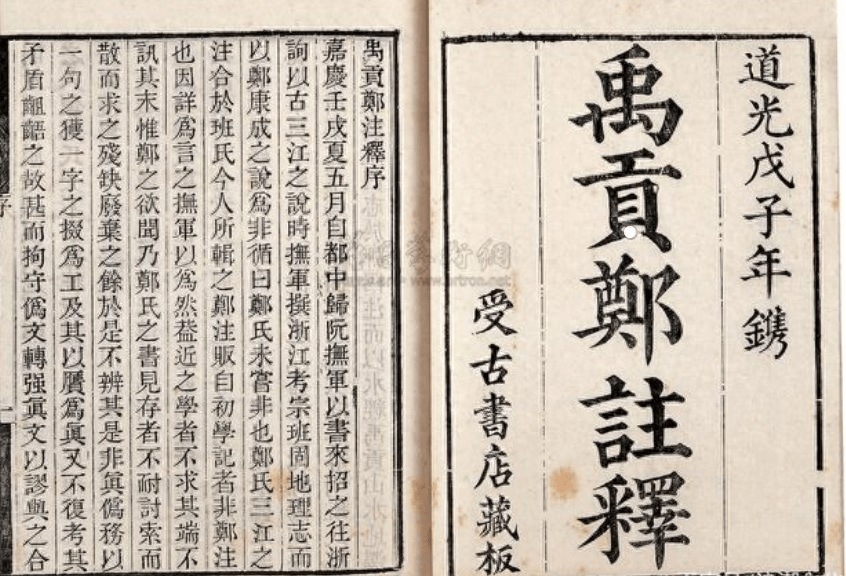 道光戊子年鐫
禹貢鄭註釋
受古書店藏板
禹貢鄭注釋序
嘉慶壬戌夏五月自都中歸阮撫軍以書來招之往浙
詢以古三江之說時撫軍撰浙江考宗班固地理志而
以鄭康成之說為非循曰鄭氏未嘗非也鄭氏三江之
注合於班氏今人所輯之鄭注販自初學記者非鄭注
也因詳為言之撫軍以為然葢近之學者不求其端不
訊其末惟鄭之欲聞乃鄭氏之書見存者不耐討索而
散而求之殘缺廢棄之餘於是不辨其是非眞僞務以
一句之獲一字之掇為工及其以贗為眞又不復考其
矛盾齟齬之故甚而拘守僞文轉强眞文以謬與之合
序
一
www.artron.net